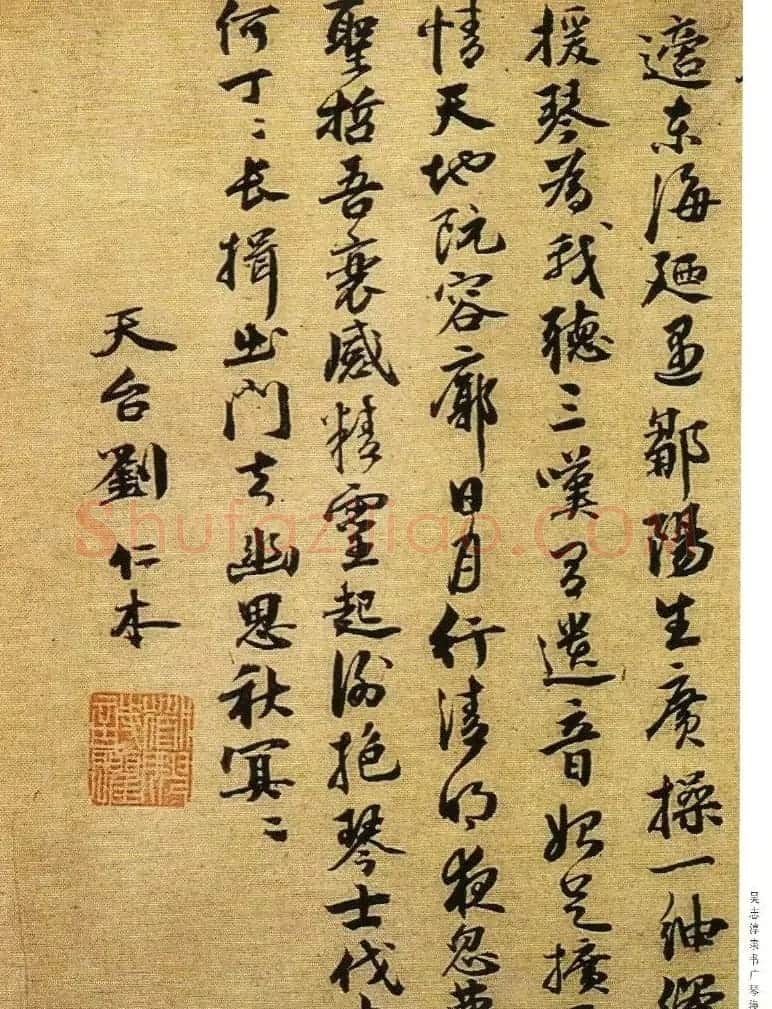 適東海廼遇鄒陽生廣操一紬繹
援琴為我聽三嘆有遺音始足擴
情天地既容廓日月行清明夜忽夢
聖哲吾衰感精靈起謝抱琴士伐
何丁〻長揖出門去幽思秋冥〻
天台劉仁本
Shufaziliao.com
吴志淳隶书广琴操